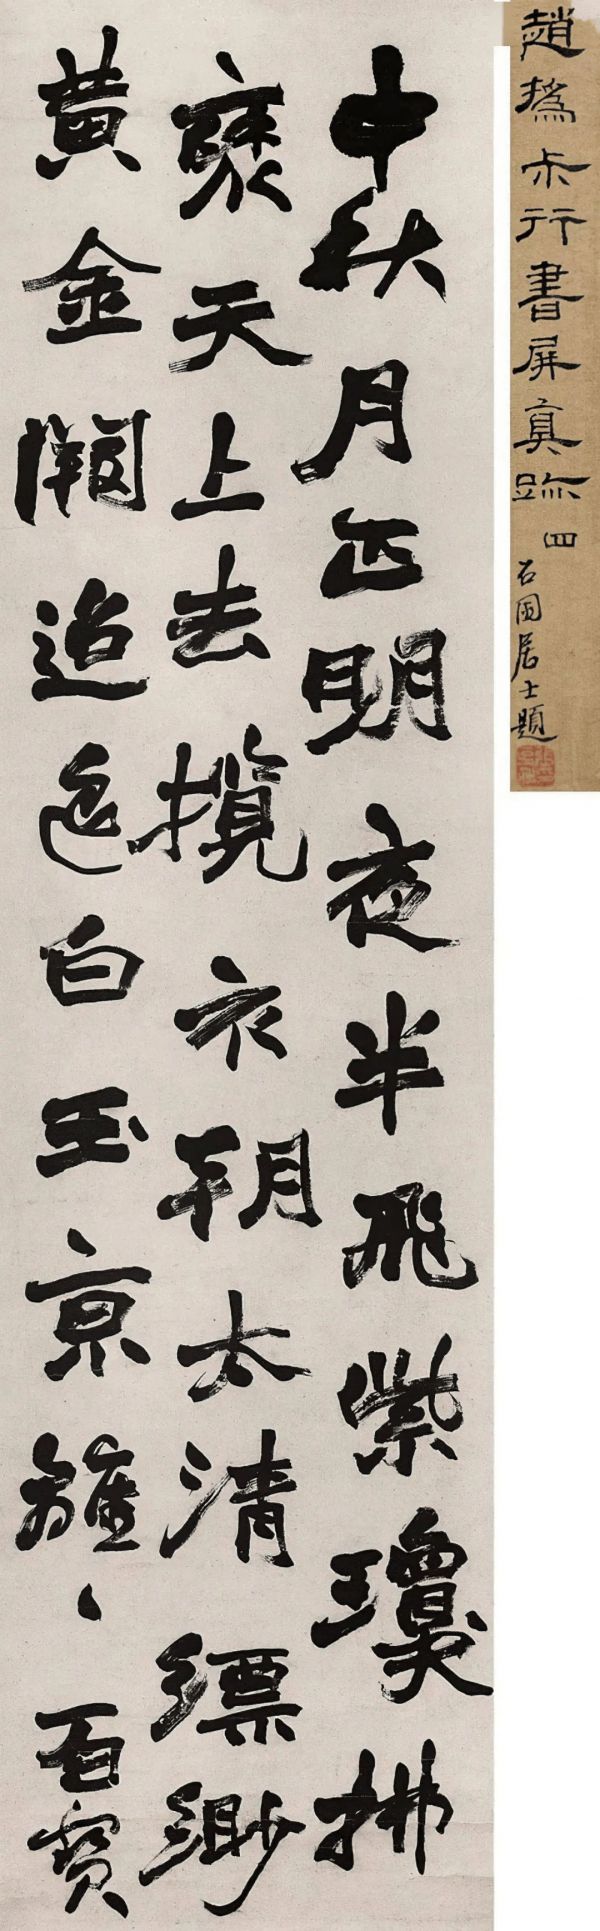 趙撝尗行書屏真跡四
石園居士題
中秋月正明夜半飛紫瓊拂
褎天上去攬衣朝太清縹緲
黃金闕迢白玉京離〻百寶